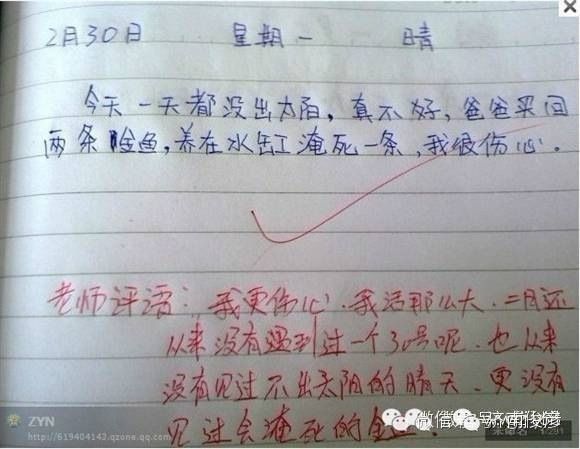 2月30日 星期一 晴
今天一天都没出太阳，真不好，爸爸买回
两条金鱼，养在水缸淹死一条，我很伤心。
老师评语：我更伤心.我活那么大.二月还
从来没有遇到过一个30号呢.也从来
没有见过不出太阳的晴天.更没有
见过会淹死的金
微信号:齐甫俊彦
ZYN
http://619404142.qzone.qq.com